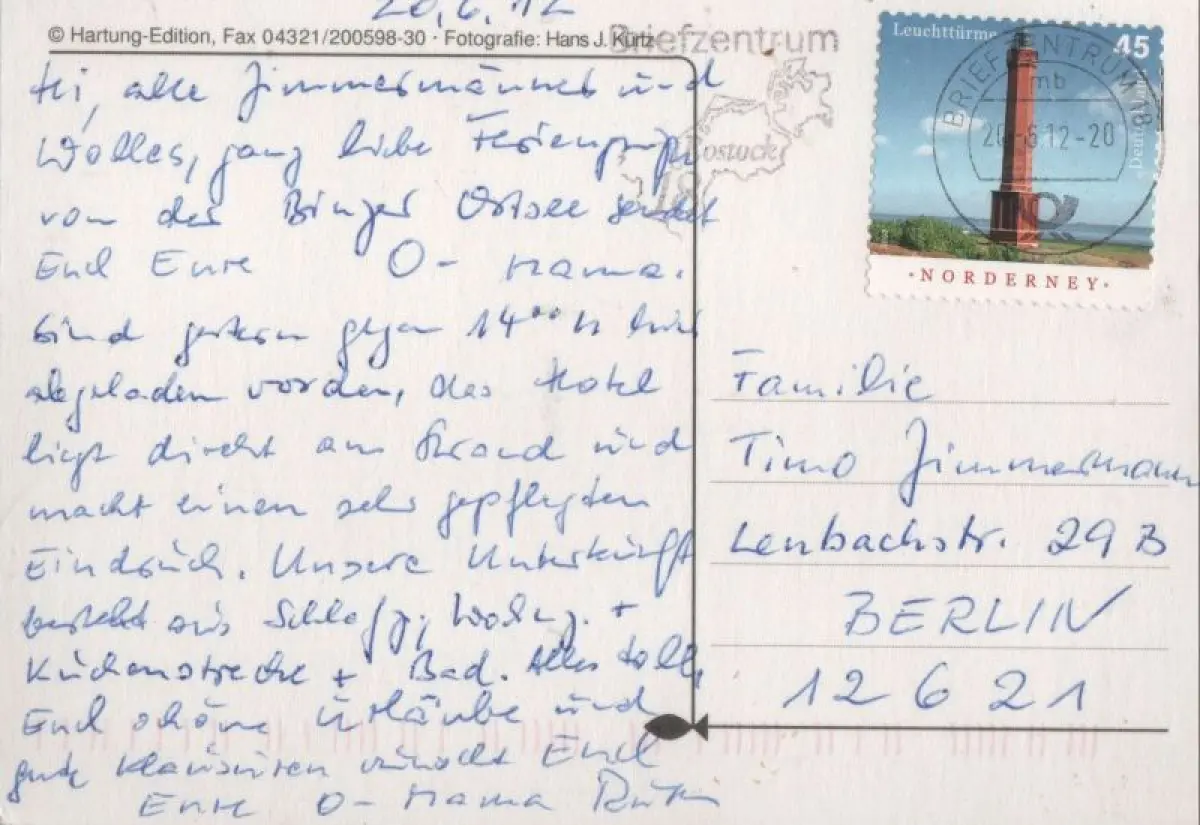 20.6.12
© Hartung-Edition, Fax 04321/200598-30 · Fotografie: Hans J. Kurtz
Hi, alle Zimmermänner und
Wolles, ganz liebe Feriengrüße
von der Binzer Ostsee sendet
Euch Eure O-Mama.
Sind gestern gegen 14⁰⁰ h hier
abgeladen worden, das Hotel
liegt direkt am Strand und
macht einen sehr gepflegten
Eindruck. Unsere Unterkunft
besteht aus Schlafz., Wohnz. +
Küchenstrecke + Bad. Alles toll,
Euch schöne Urläube und
gute Klausuren wünscht Euch
Eure O-Mama Ruth
Briefzentrum
Rostock
18
Leuchttürme
45
Deutschland
NORDERNEY
BRIEFZENTRUM 18
mb
20.-6.12-20
Familie
Timo Zimmermann
Lenbachstr. 29 B
BERLIN
12621